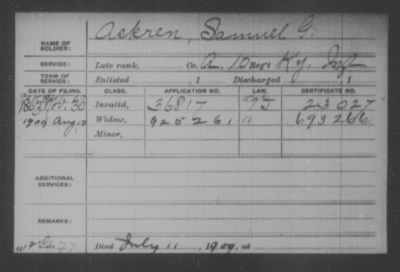 NAME OF SOLDIER: Ackren, Samuel G.
SERVICE: Late rank, Co. A, 10 Reg't Ky. Inf
TERM OF SERVICE: Enlisted , 1 Discharged , 1
DATE OF FILING. CLASS. APPLICATION NO. LAW. CERTIFICATE NO.
1863 Nov. 30 Invalid, 36817 23027
1909 Aug. Widow, 925261 693266
Minor,
ADDITIONAL SERVICES:
REMARKS:
Died July 11, 1909, at